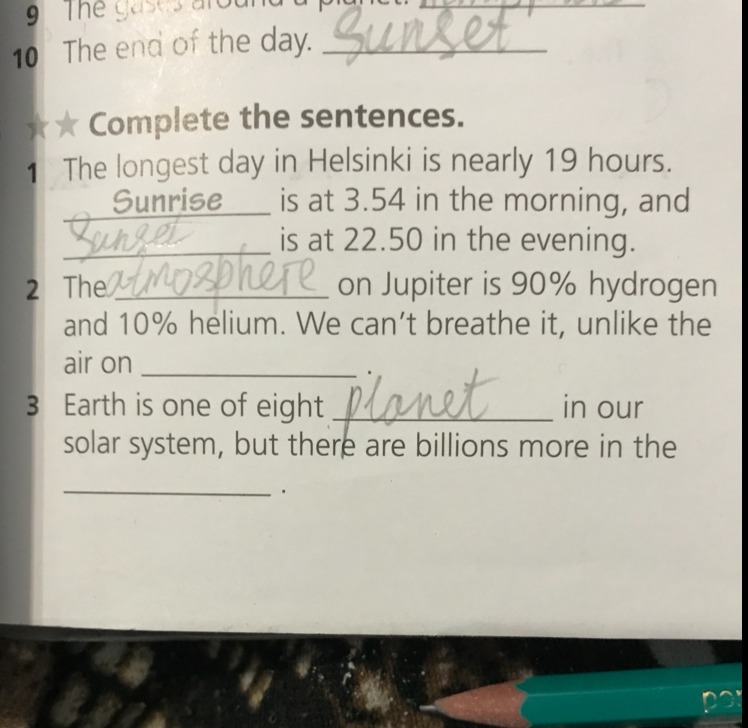 9 The gases around a planet.
10 The end of the day. Sunset
★★ Complete the sentences.
1 The longest day in Helsinki is nearly 19 hours.
Sunrise is at 3.54 in the morning, and
Sunset is at 22.50 in the evening.
2 The atmosphere on Jupiter is 90% hydrogen
and 10% helium. We can't breathe it, unlike the
air on ____________ .
3 Earth is one of eight planet in our
solar system, but there are billions more in the
____________ .